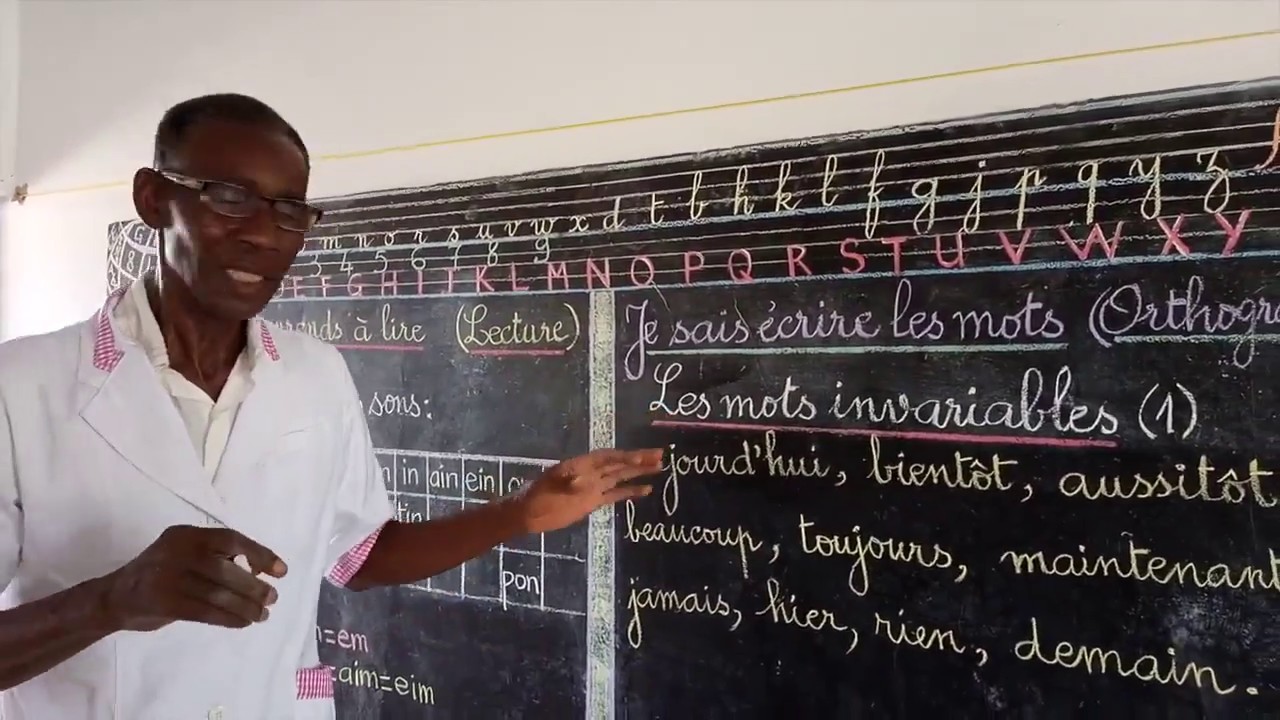 m n o r s u v w x d t b h k l f g j p q y z
3 4 5 6 7 8 9
E F G H I J K L M N O P Q R S T U V W X Y
à lire (Lecture)
sons:
in ain ein
pon
=em
=aim=eim
Je sais écrire les mots (Orthogra
Les mots invariables (1)
jourd'hui, bientôt, aussitôt
beaucoup, toujours, maintenant
jamais, hier, rien, demain.